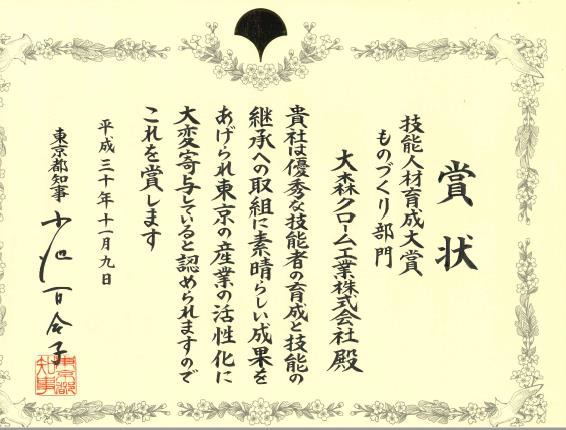 賞状
技能人材育成大賞
ものづくり部門
大森クローム工業株式会社殿
貴社は優秀な技能者の育成と技能の
継承への取組に素晴らしい成果を
あげられ東京の産業の活性化に
大変寄与していると認められますので
これを賞します
平成三十年十一月九日
東京都知事 小池百合子
東京都知事